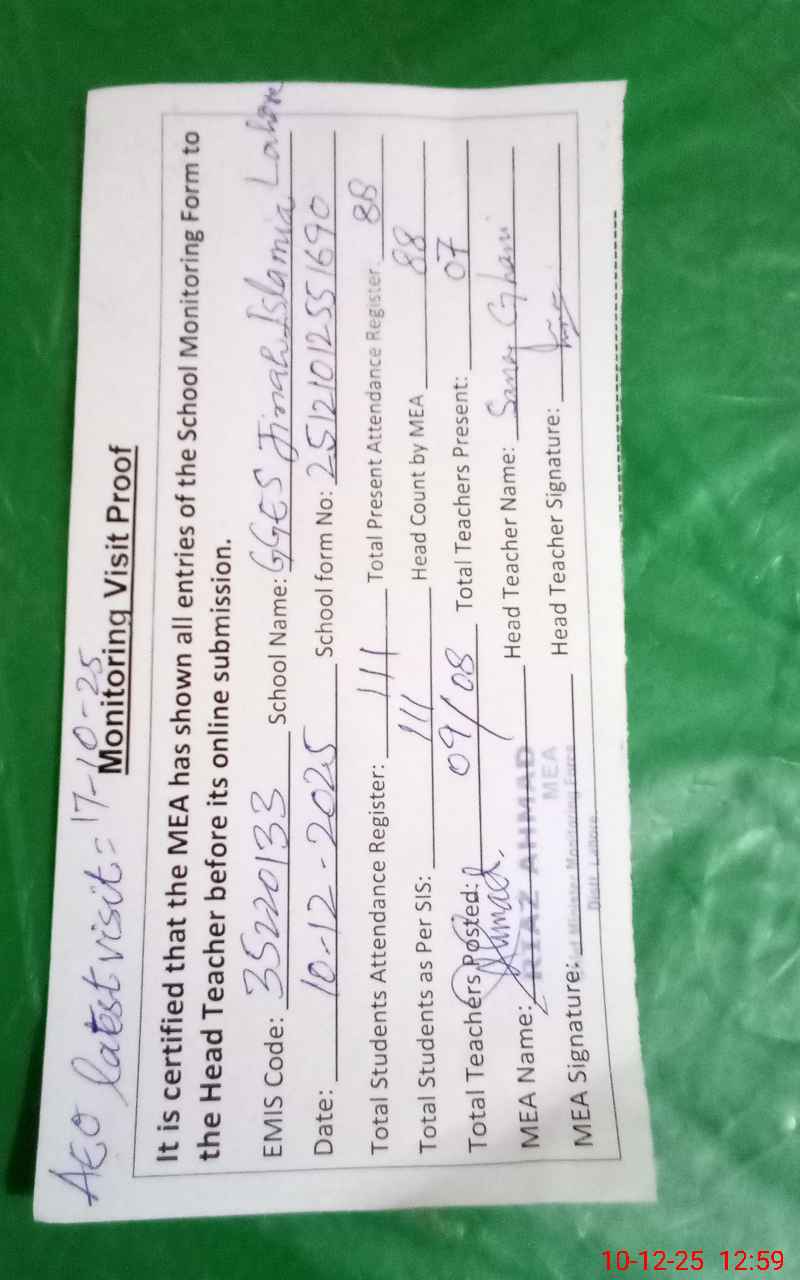 AEO latest visit = 17-10-25
Monitoring Visit Proof
It is certified that the MEA has shown all entries of the School Monitoring Form to
the Head Teacher before its online submission.
EMIS Code: 35220133 School Name: GGES Jinah Islamia Lahore
Date: 10-12-2025 School form No: 251210125551690
Total Students Attendance Register: 111 Total Present Attendance Register: 88
Total Students as Per SIS: 111 Head Count by MEA 88
Total Teachers Posted: 09/08 Total Teachers Present: 07
MEA Name: RIAZ AHMAD Head Teacher Name: Ghani
MEA
MEA Signature: Head Teacher Signature:
Minister Monitoring Force
Distt. Lahore.
10-12-25 12:59